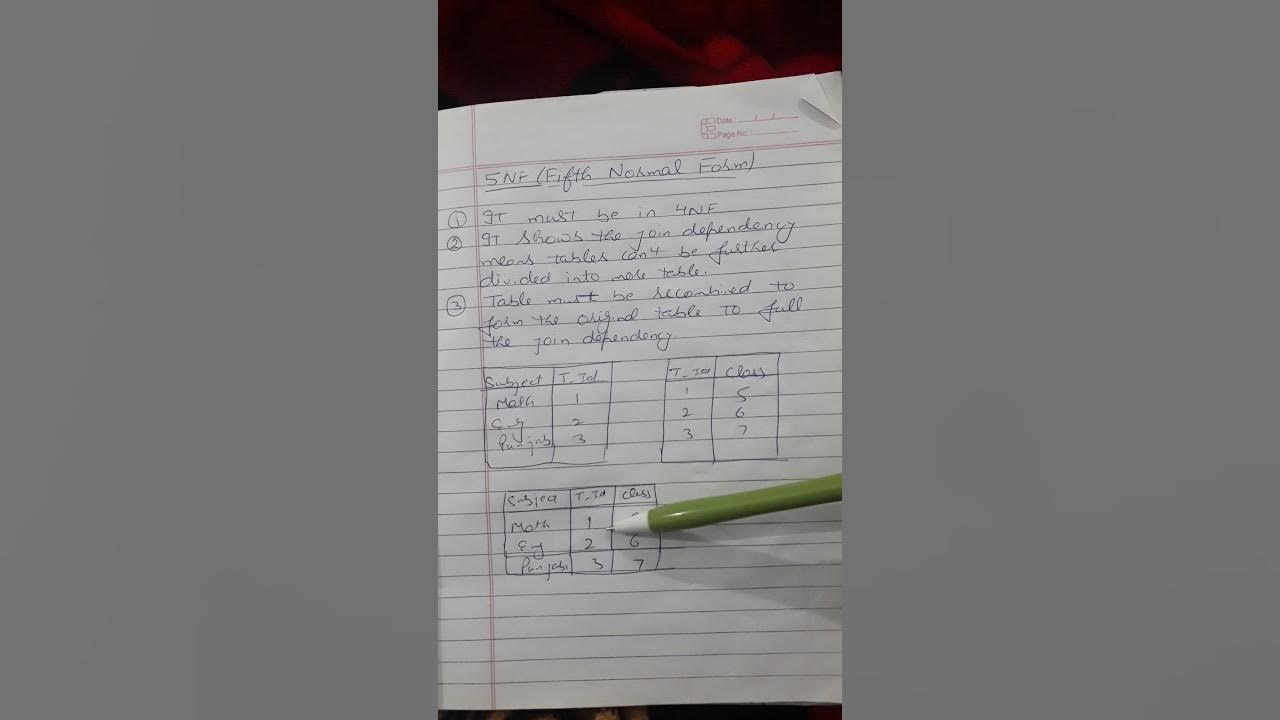 Date : / /
Page No. :
5NF (Fifth Normal Form)
① It must be in 4NF
② It shows the join dependency
means tables can't be further
divided into more table.
③ Table must be recombined to
form the original table to full
the join dependency.
Subject T_Id
Math 1
Eng 2
Punjabi 3
T_Id Class
1 5
2 6
3 7
Subject T_Id Class
Math 1
Eng 2 6
Punjabi 3 7